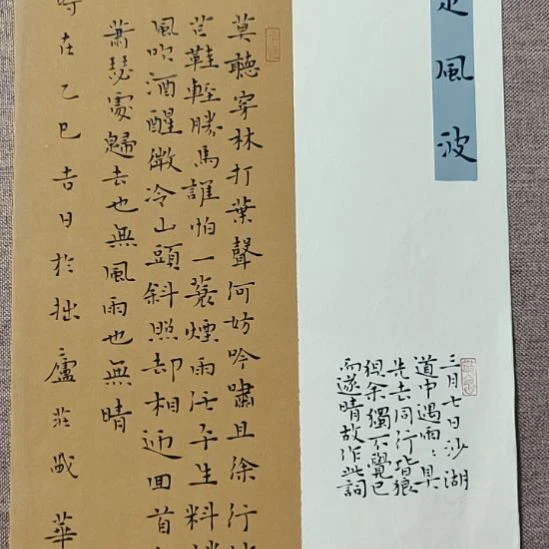 定風波
三月七日沙湖
道中遇雨〻具
先去同行皆狼
狽余獨不覺已
而遂晴故作此詞
莫聽穿林打葉聲何妨吟嘯且徐行
芒鞋輕勝馬誰怕一蓑煙雨任平生料峭
風吹酒醒微冷山頭斜照却相迎回首
蕭瑟處歸去也無風雨也無晴
時在乙巳吉日於拙廬莊華